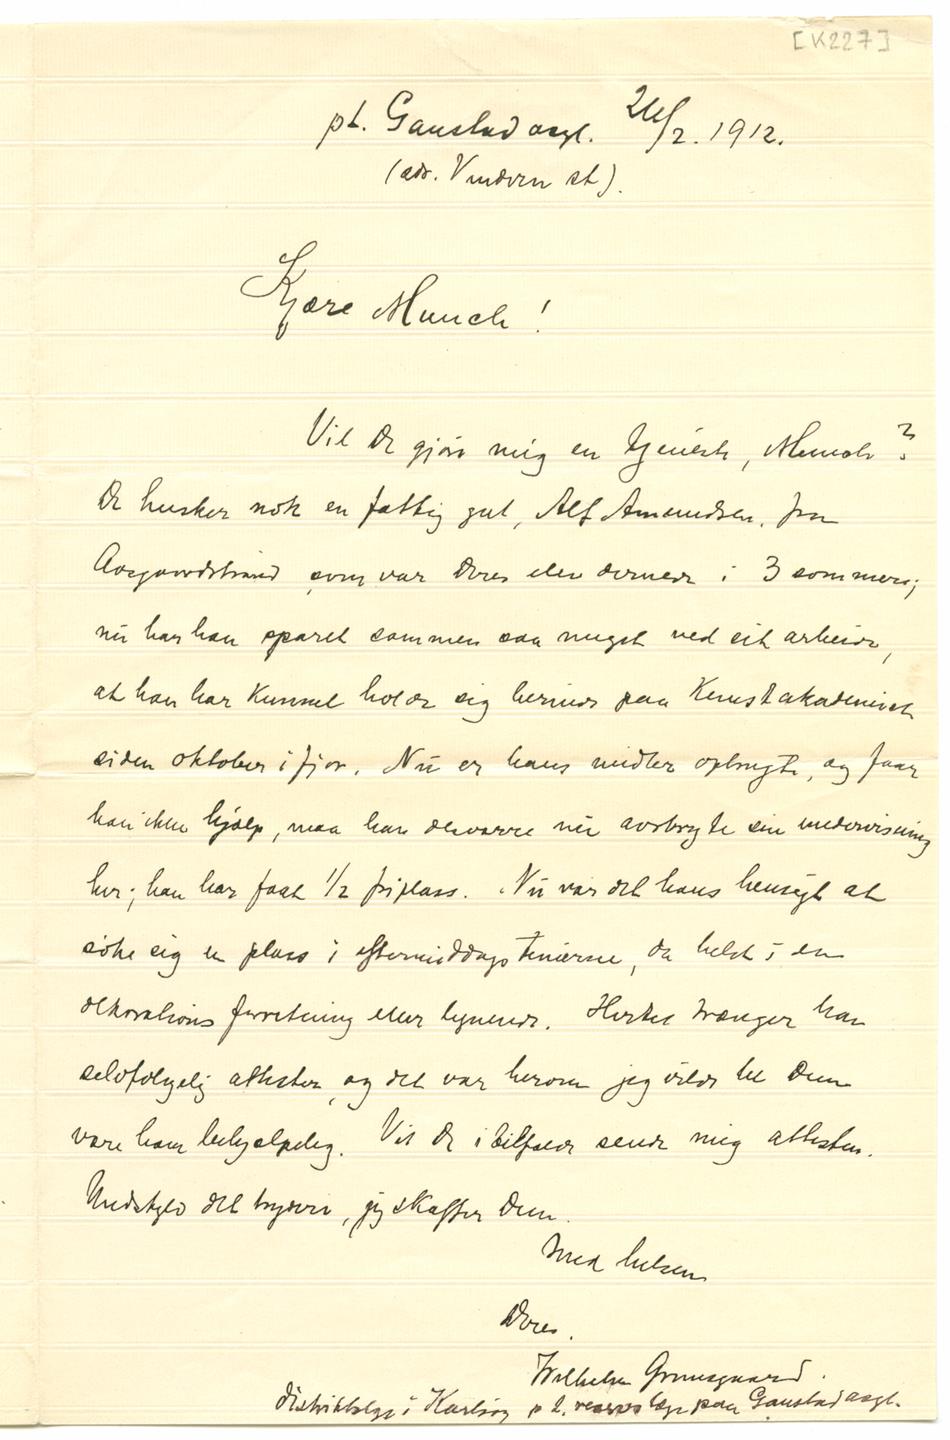 [K227]
pt. Gaustad asyl. 24/2. 1912.
(adr. Vinderen st).
Kjære Munch!
Vil De gjøre mig en tjeneste, Munch?
De husker nok en fattig gut, Alf Amundsen, fra
Aasgaardstrand, som var Deres elev dernede i 3 sommere;
nu har han sparet sammen saa meget ved sit arbeide,
at han har kunnet holde sig herinde paa Kunstakademiet
siden oktober i fjor. Nu er hans midler opbrugte, og faar
han ikke hjælp, maa han desværre nu avbryte sin undervisning
her; han har faat 1/2 friplass. Nu var det hans hensigt at
søke sig en plass i eftermiddagstimerne, da helst i en
dekorationsforretning eller lignende. Hertil trænger han
selvfølgelig attester, og det var herom jeg vilde be Dem
være ham behjelpelig. Vil De i tilfælde sende mig attesten.
Undskyld det bryderi, jeg skaffer Dem.
Med hilsen
Deres.
Wilhelm Grimsgaard.
Distriktslæge i Karlsøy p t. reservelæge paa Gaustad asyl.